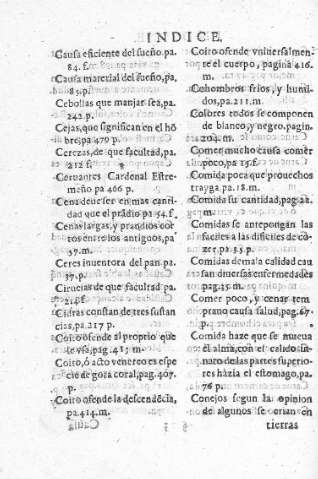 INDICE.
Causa eficiente del sueño, pa.
84. f.
Causa material del sueño, pa,
85. p.
Cebollas que manjar sea, pa.
242 p.
Cejas, que significan en el hō
bre, pa 479 p.
Cerezas, de que facultad, pa.
212 f.
Ceruantes Cardenal Estre-
meño pa 466 p.
Cena deue ser en mas canti
dad que el prādio pa 54. f.
Cenas largas, y prandios cor
tos entre los antiguos, pa
57. m.
Ceres inuentora del pan pa.
37. p.
Ciruelas de que facultad pa
214 f.
Cidras constan de tres sustan
cias, pa. 217 p.
Coito ofende al proprio que
le vsa, pag. 413 m.
Coito, ò acto venereo es espe
cie de gota coral, pag. 407.
p.
Coito ofende la descendēcia,
pa. 414. m.
Coito ofende vniuersalmen-
te el cuerpo, pagina 416.
m.
Cohombros frios, y humi-
dos, pa. 211. m.
Colores todos se componen
de blanco, y negro, pagin.
204. m.
Comer mucho causa comer
poco, pa 15. f.
Comida poca que prouechos
trayga pa. 18. m.
Comida su cantidad, pag. 21.
m.
Comidas se antepongan las
faciles a las dificiles de co-
zer, pa. 55. p.
Comidas de mala calidad cau
san diuersas enfermedades
pag. 25. m.
Comer poco, y cenar tem
prano causa salud, pag. 67.
p.
Comida haze que se mueua
el alma, con el calido su-
nato de las partes superio-
res házia el estomago, pa.
76 p.
Conejos segun la opinion
de algunos se crian en
tierras